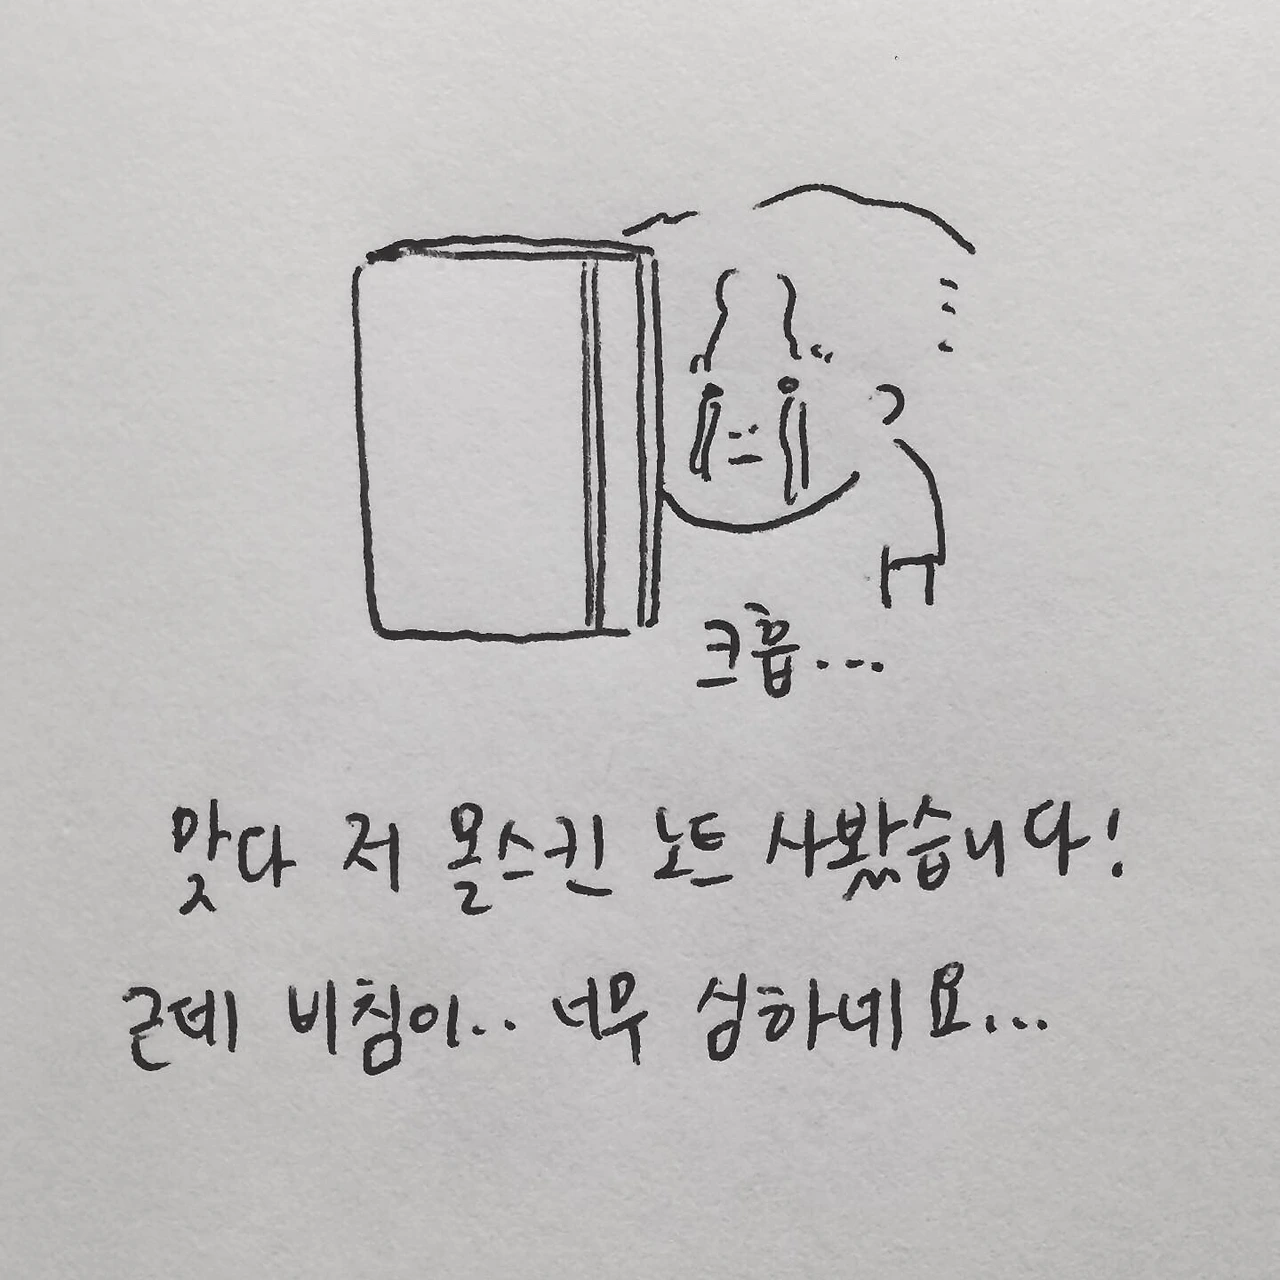 크흡...
맞다 저 몰스킨 노트 사봤습니다!
근데 비침이.. 너무 심하네요...